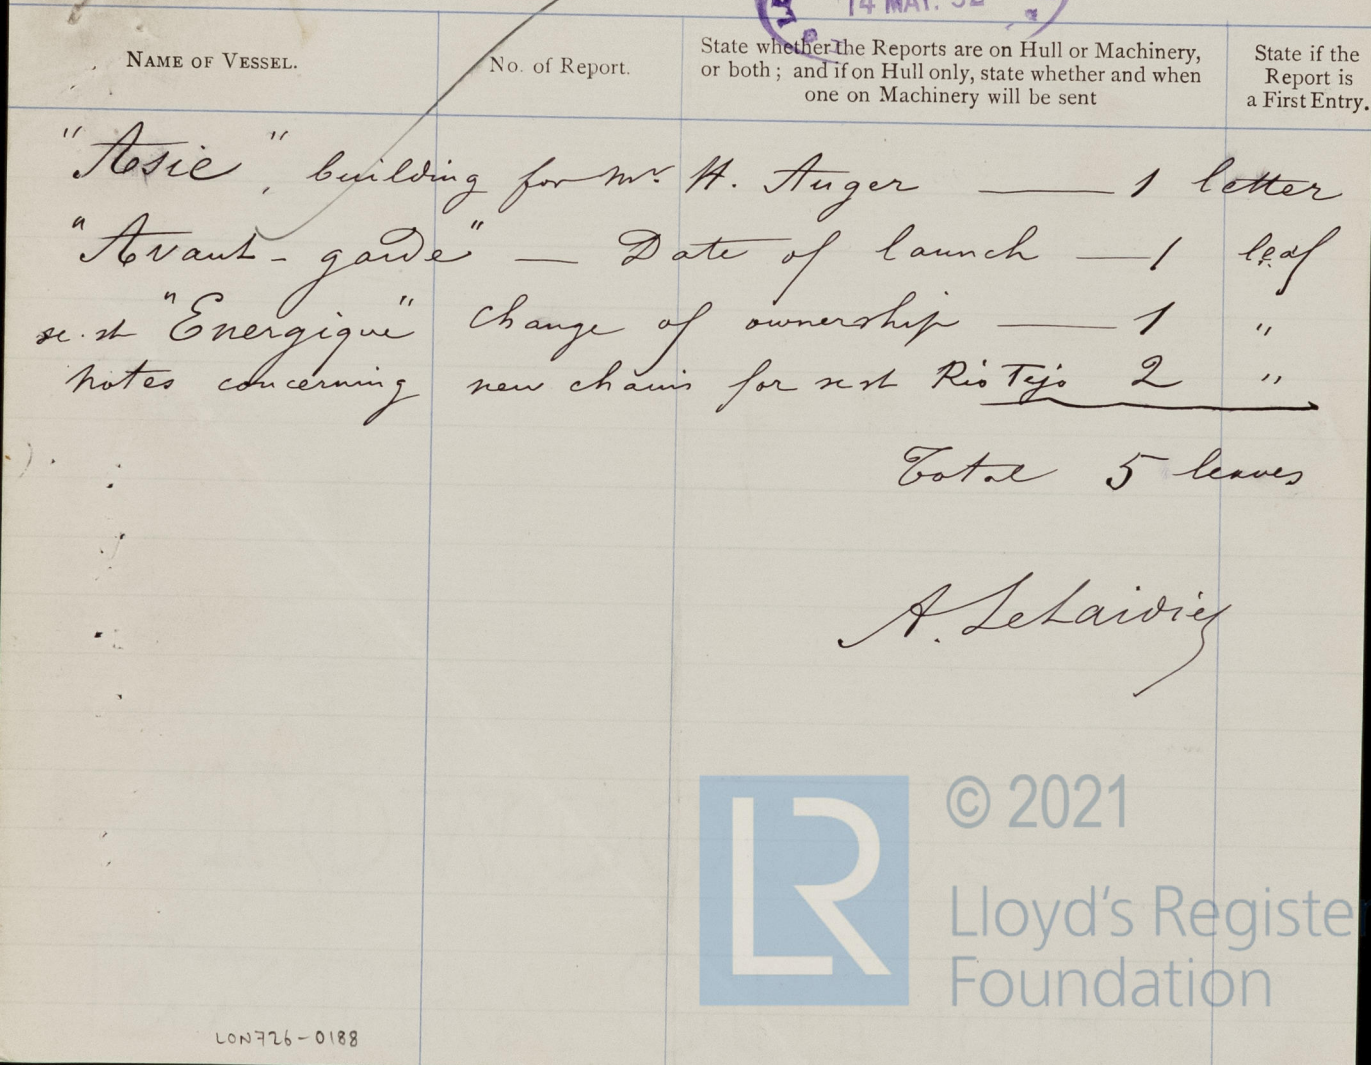 14 MAY. 92
NAME OF VESSEL.
No. of Report.
State whether the Reports are on Hull or Machinery,
or both; and if on Hull only, state whether and when
one on Machinery will be sent
State if the
Report is
a First Entry.
"Asie", building for Mr. H. Auger — 1 letter
"Avant-garde" — Date of launch — 1 leaf
sc. st "Energique" Change of ownership — 1 "
notes concerning new chains for sc st Rio Tejo 2 "
Total 5 leaves
A.
© 2021
LR
Lloyd's Registe
Foundation
LON726-0188